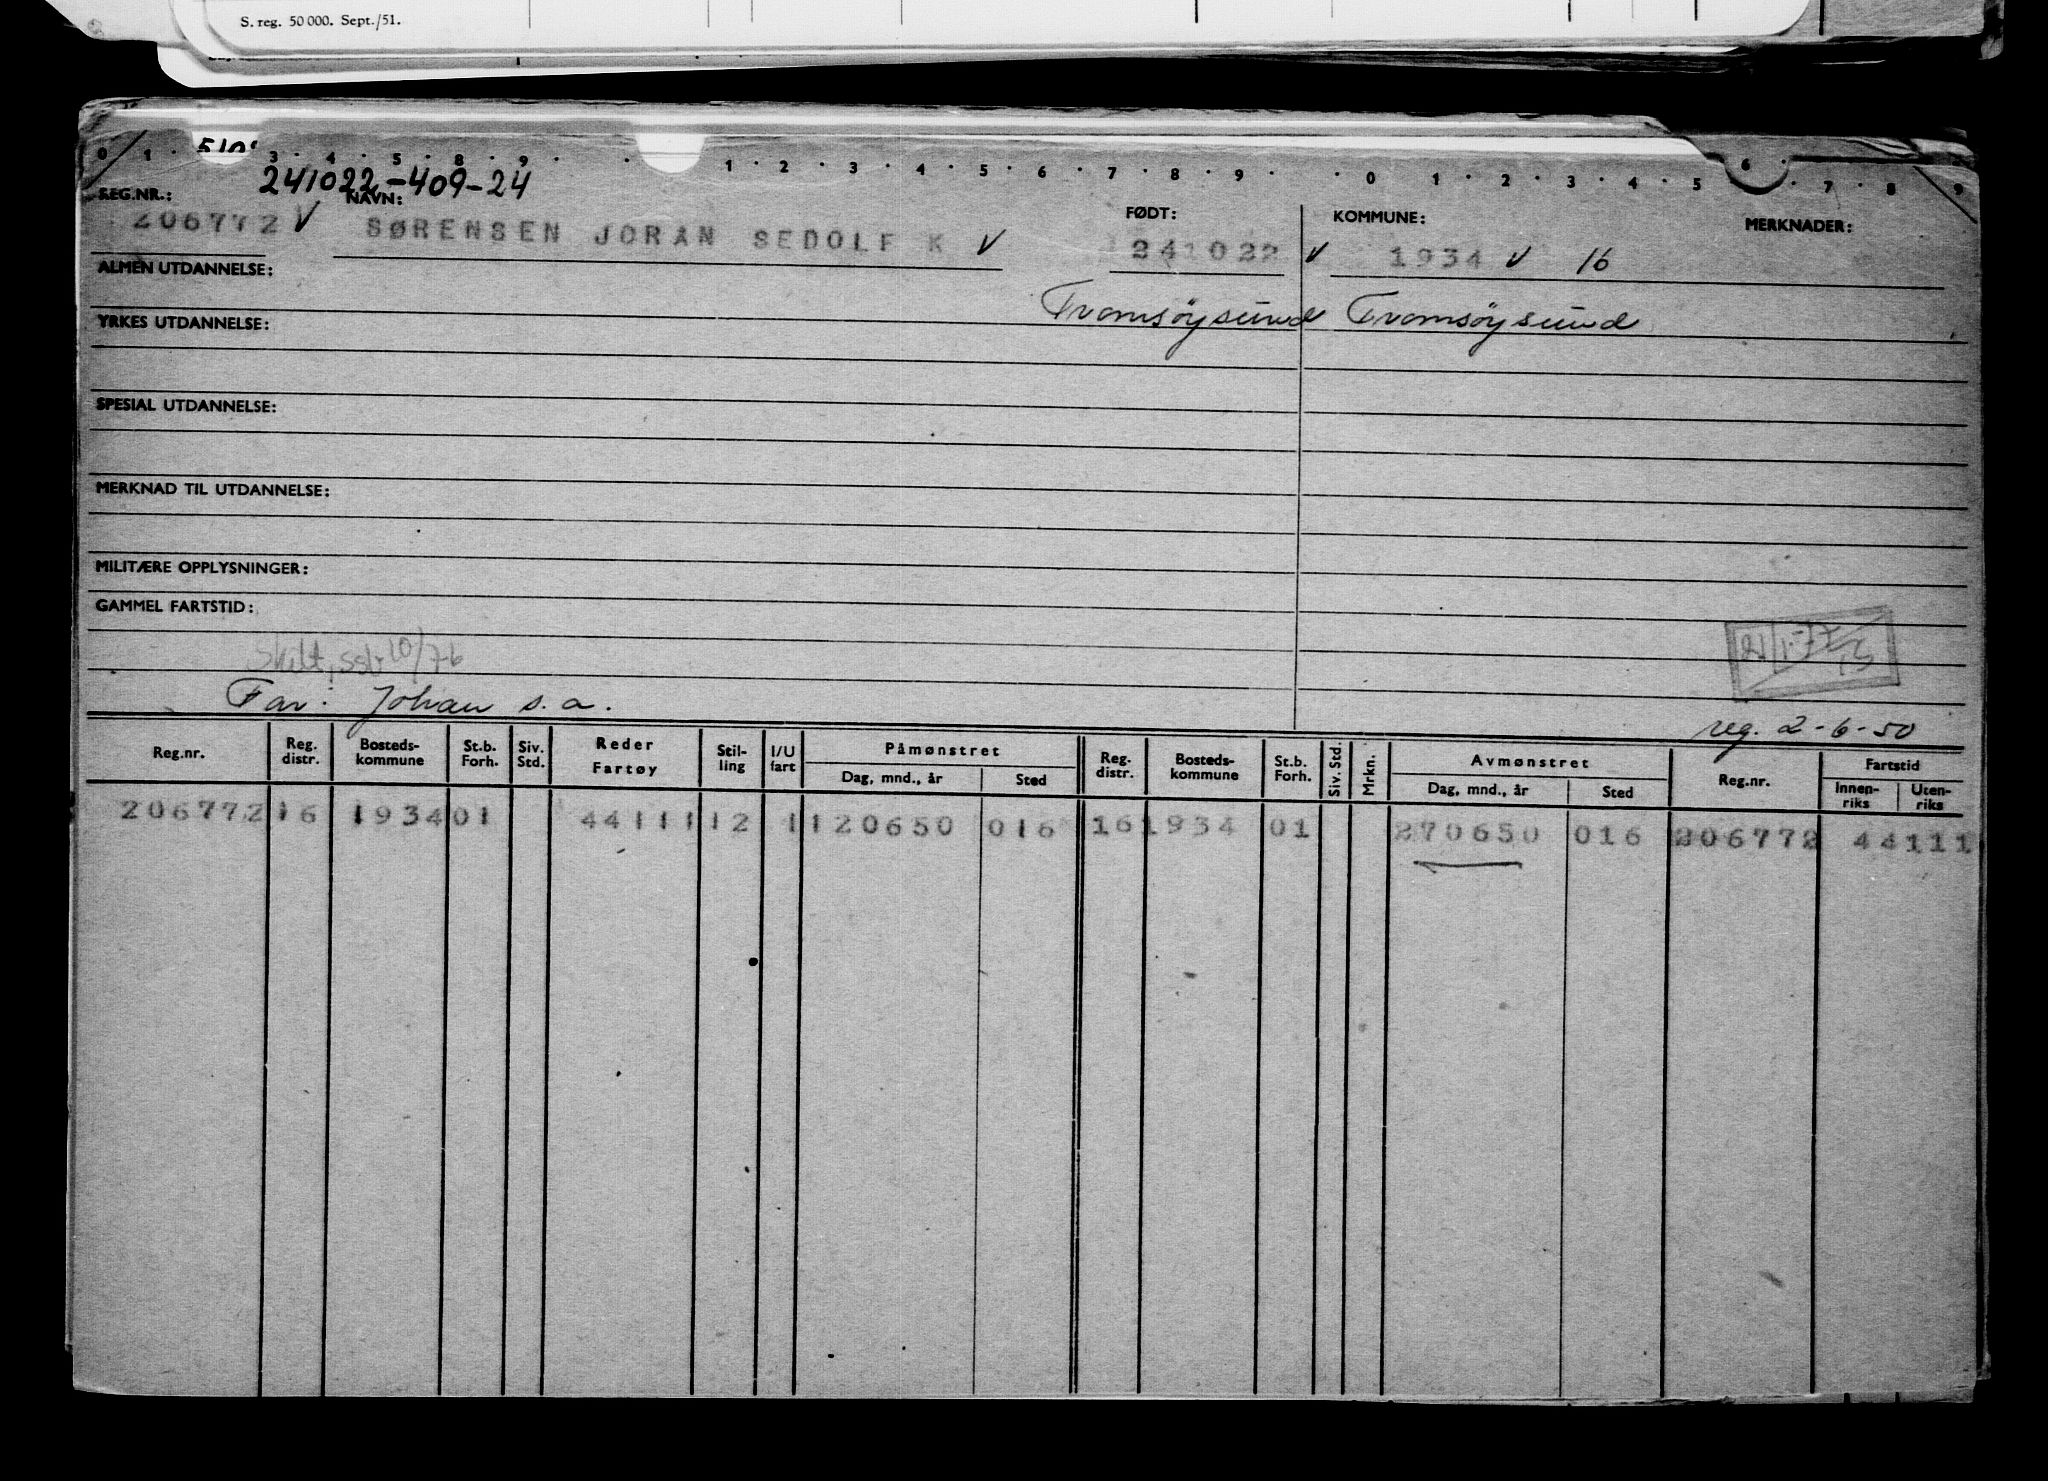 S. reg. 50 000. Sept./51.
0 1 3 4 5 8 9 1 2 3 4 5 6 7 8 9 0 1 2 3 4 5 6 7 8 9
241022-409-24
REG.NR.: NAVN: FØDT: KOMMUNE: MERKNADER:
206772 V SØRENSEN JORAN SEDOLF K V 241022 V 1934 V 16
ALMEN UTDANNELSE:
Tromsöysund Tromsöysund
YRKES UTDANNELSE:
SPESIAL UTDANNELSE:
MERKNAD TIL UTDANNELSE:
MILITÆRE OPPLYSNINGER:
GAMMEL FARTSTID:
Far: Johan s.a.
reg. 2-6-50
Reg.nr. Reg. distr. Bosteds-kommune St.b. Forh. Siv. Std. Reder Fartøy Stil-ling I/U fart Påmønstret Dag, mnd., år Sted Reg. distr. Bosteds-kommune St.b. Forh. Siv. Std. Mrkn. Avmønstret Dag, mnd., år Sted Reg.nr. Fartstid Innen-riks Uten-riks
206772 16 1934 01 44111 12 1 120650 016 16 1934 01 270650 016 206772 44111